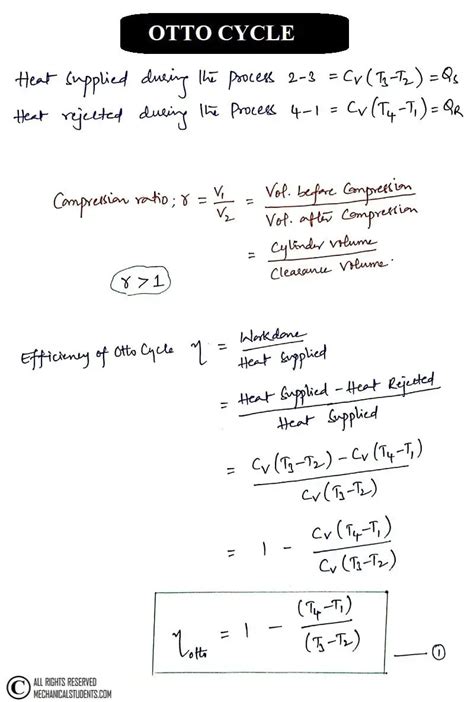 OTTO CYCLE
Heat Supplied during the Process 2-3 = Cv(T3-T2) = QS
Heat rejected during the Process 4-1 = Cv(T4-T1) = QR
Compression ratio; r = V1/V2 = Vol. before Compression / Vol. after Compression
= Cylinder volume / Clearance Volume.
r > 1
Efficiency of Otto Cycle η = Workdone / Heat Supplied
= Heat Supplied - Heat Rejected / Heat Supplied
= Cv(T3-T2) - Cv(T4-T1) / Cv(T3-T2)
= 1 - Cv(T4-T1) / Cv(T3-T2)
ηotto = 1 - (T4-T1) / (T3-T2) — ①
© ALL RIGHTS RESERVED
MECHANICALSTUDENTS.COM